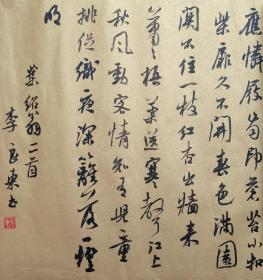 應憐屐齒印蒼苔小扣
柴扉久不開春色滿園
關不住一枝紅杏出牆来
蕭々梧葉送寒聲江上
秋風動客情知有児童
挑促織夜深籬落一燈
明
葉紹翁二首
李良東书